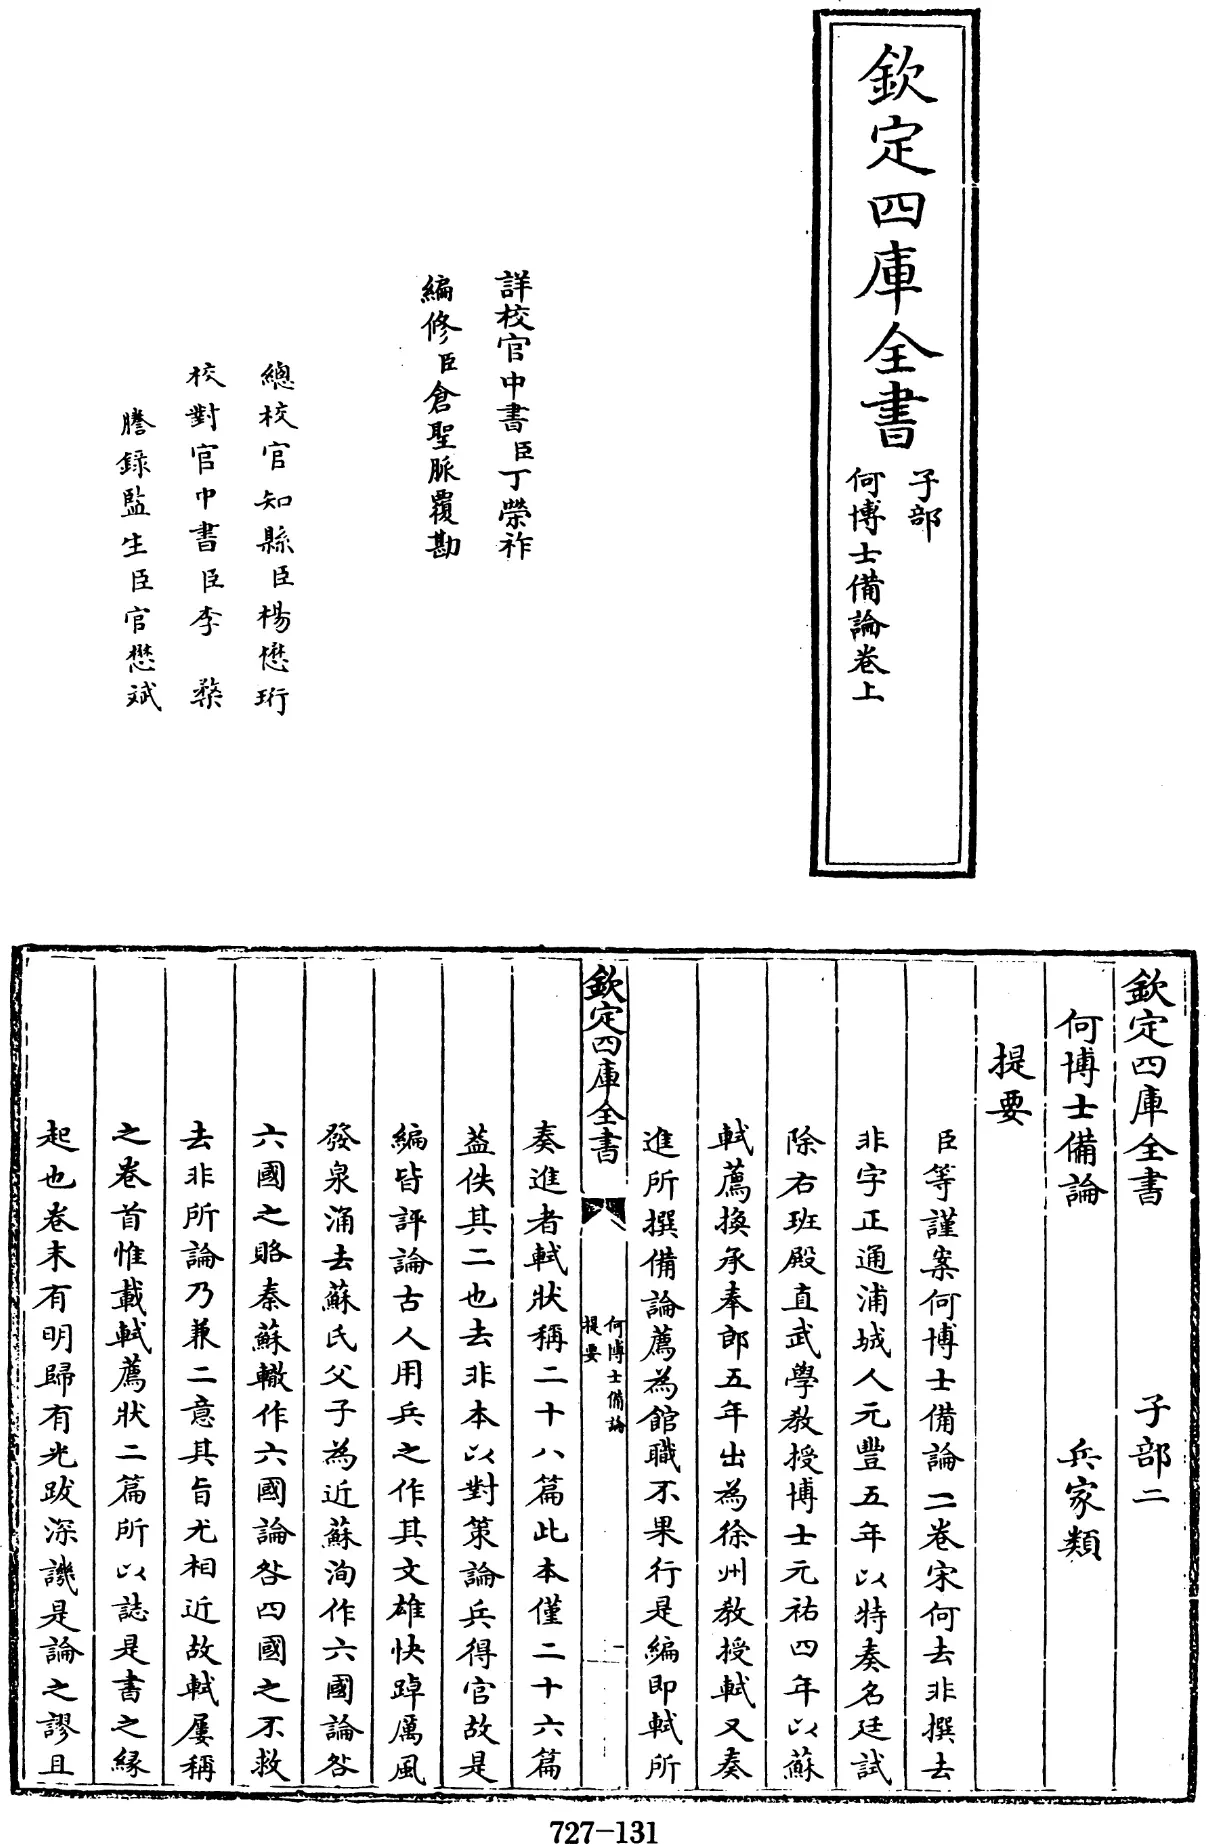 欽定四庫全書
子部
何博士備論卷上
詳校官中書臣丁榮祚
編修臣倉聖脈覆勘
總校官知縣臣楊懋珩
校對官中書臣李粲
謄錄監生臣官懋斌
欽定四庫全書 子部二
何博士備論 兵家類
提要
臣等謹案何博士備論二卷宋何去非撰去
非字正通浦城人元豐五年以特奏名廷試
除右班殿直武學教授博士元祐四年以蘇
軾薦換承奉郎五年出為徐州教授軾又奏
進所撰備論薦為館職不果行是編即軾所
欽定四庫全書
何博士備論
提要
一
奏進者軾狀稱二十八篇此本僅二十六篇
葢佚其二也去非本以對策論兵得官故是
編皆評論古人用兵之作其文雄快踔厲風
發泉涌去蘇氏父子為近蘇洵作六國論咎
六國之賂秦蘇轍作六國論咎四國之不救
去非所論乃兼二意其旨尤相近故軾屢稱
之卷首惟載軾薦狀二篇所以誌是書之緣
起也卷末有明歸有光跋深譏是論之謬且
727-131